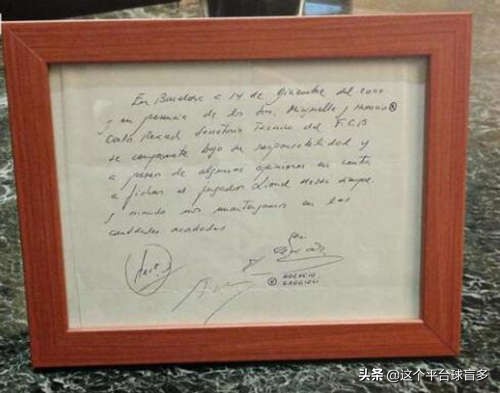 En Barcelona a 14 de Diciembre del 2000
y en presencia de los Srs. Minguella y Horacio
Carles Rexach Secretario Técnico del F.C.B
se compromete bajo su responsabilidad y
a pesar de algunas opiniones en contra
a fichar al jugador Lionel Messi siempre
y cuando nos mantengamos en las
cantidades acordadas
HORACIO
GAGGIOLI
头条 @这个平台球盲多